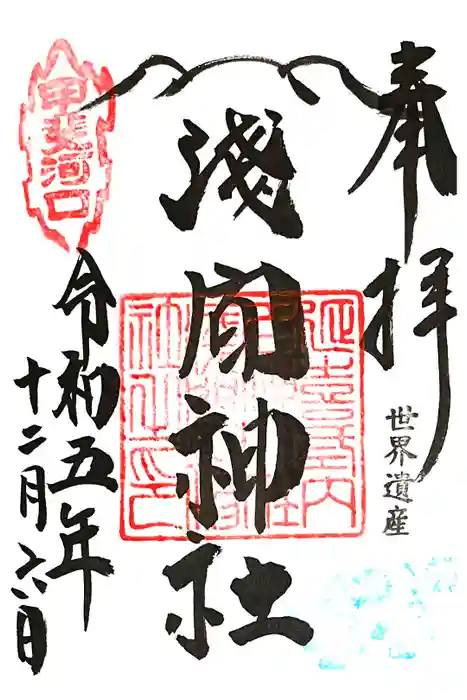 奉拝
世界遺産
浅間神社
延喜式内
甲斐河口
令和五年
十二月六日